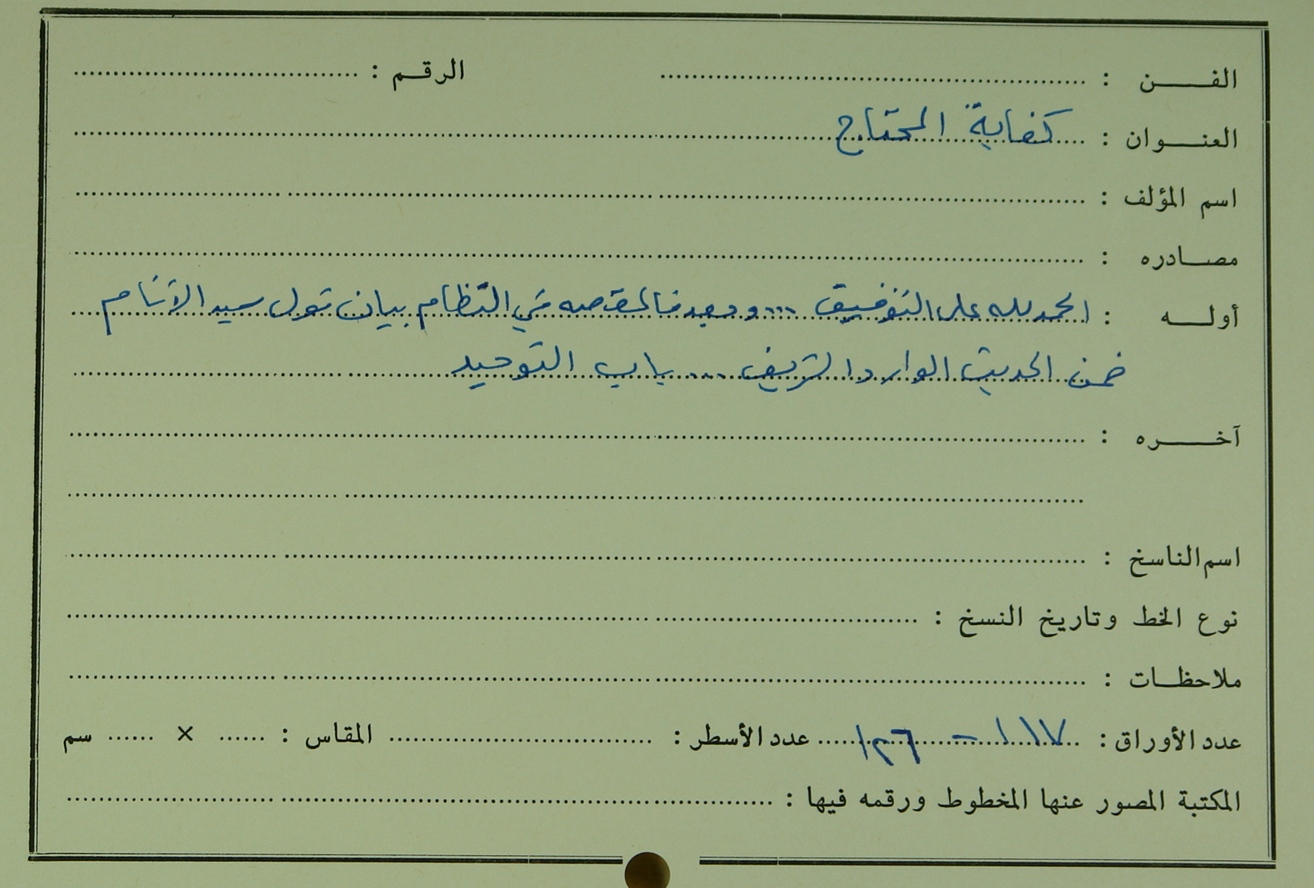 الفـــن : الرقـم :
العنـوان : كفاية المحتاج
اسم المؤلف :
مصـادره :
أولـه : الحمد لله على التوفيق ... وبعد فالمقصد في النظام بيان قول سيد الأنام
ضمن الحديث الوارد الشريف ... باب التوحيد
آخـــره :
اسم الناسخ :
نوع الخط وتاريخ النسخ :
ملاحظـات :
عدد الأوراق : ١١٧ - ١٢٦ عدد الأسطر : المقاس : × سم
المكتبة المصور عنها المخطوط ورقمه فيها :